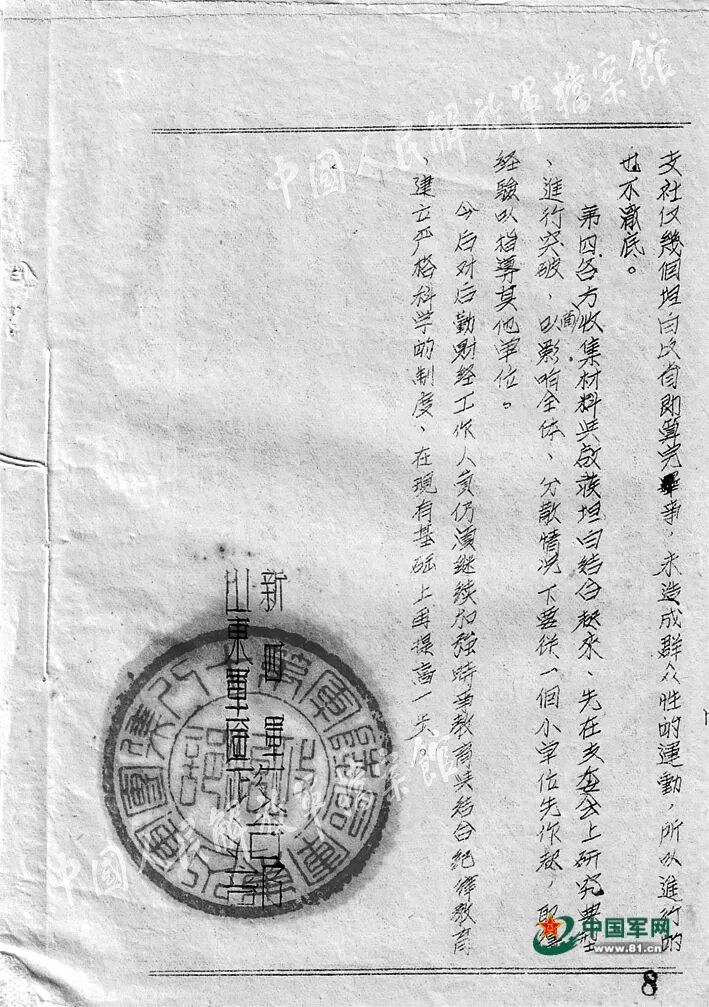 支社仅幾個坦白以后即算完畢事,未造成群众性的運動,所以進行的
也不澈底。
第四各方面收集材料与啟蒙坦白結合起來、先在支委会上研究典型
、進行突破,以影响全体、分散情况下要從一個小单位先作起,取得
經驗以指導其他单位。
今后对后勤财經工作人員仍須继续加強時事教育与結合纪律教育
、建立严格科学的制度、在現有基础上再提高一步。
新四軍
山東軍區
中國人民解放軍檔案館
中國人民解放軍檔案館
中国军网
www.81.cn
8